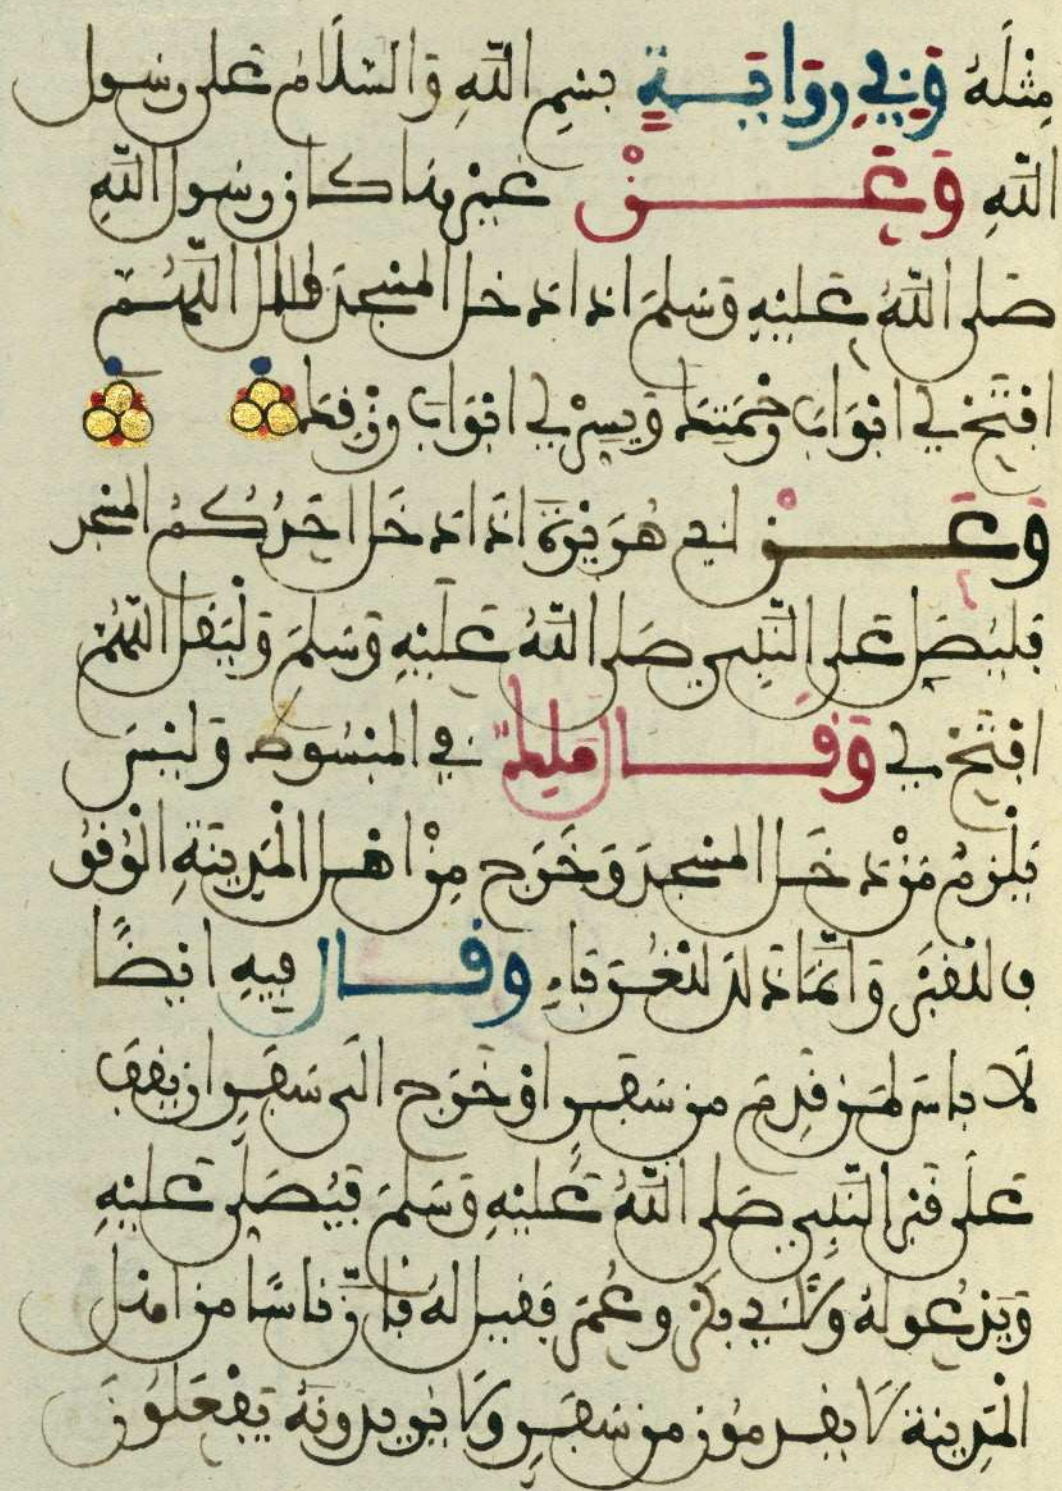 مِثْلَهُ وَفِي رِوَايَةٍ بِسْمِ اللَّهِ وَالسَّلَامُ عَلَى رَسُولِ
اللَّهِ وَعَنْ غَيْرِهَا كَانَ رَسُولُ اللَّهِ
صَلَّى اللَّهُ عَلَيْهِ وَسَلَّمَ إِذَا دَخَلَ الْمَسْجِدَ قَالَ اللَّهُمَّ
افْتَحْ لِي أَبْوَابَ رَحْمَتِكَ وَيَسِّرْ لِي أَبْوَابَ رِزْقِكَ
وَعَنْ أَبِي هُرَيْرَةَ إِذَا دَخَلَ أَحَدُكُمُ الْمَسْجِدَ
فَلْيُصَلِّ عَلَى النَّبِيِّ صَلَّى اللَّهُ عَلَيْهِ وَسَلَّمَ وَلْيَقُلِ اللَّهُمَّ
افْتَحْ لِي وَقَالَ مَالِكٌ فِي الْمَبْسُوطِ وَلَيْسَ
يَلْزَمُ مَنْ دَخَلَ الْمَسْجِدَ وَخَرَجَ مِنْ أَهْلِ الْمَدِينَةِ الْوُقُوفُ
بِالْقَبْرِ وَإِنَّمَا ذَلِكَ لِلْغُرَبَاءِ وَقَالَ فِيهِ أَيْضًا
لَا بَأْسَ لِمَنْ قَدِمَ مِنْ سَفَرٍ أَوْ خَرَجَ إِلَى سَفَرٍ أَنْ يَقِفَ
عَلَى قَبْرِ النَّبِيِّ صَلَّى اللَّهُ عَلَيْهِ وَسَلَّمَ فَيُصَلِّيَ عَلَيْهِ
وَيَدْعُوَ لَهُ وَلِأَبِي بَكْرٍ وَعُمَرَ فَقِيلَ لَهُ فَإِنَّ نَاسًا مِنْ أَهْلِ
الْمَدِينَةِ لَا يَقْدَمُونَ مِنْ سَفَرٍ وَلَا يُرِيدُونَهُ يَفْعَلُونَ